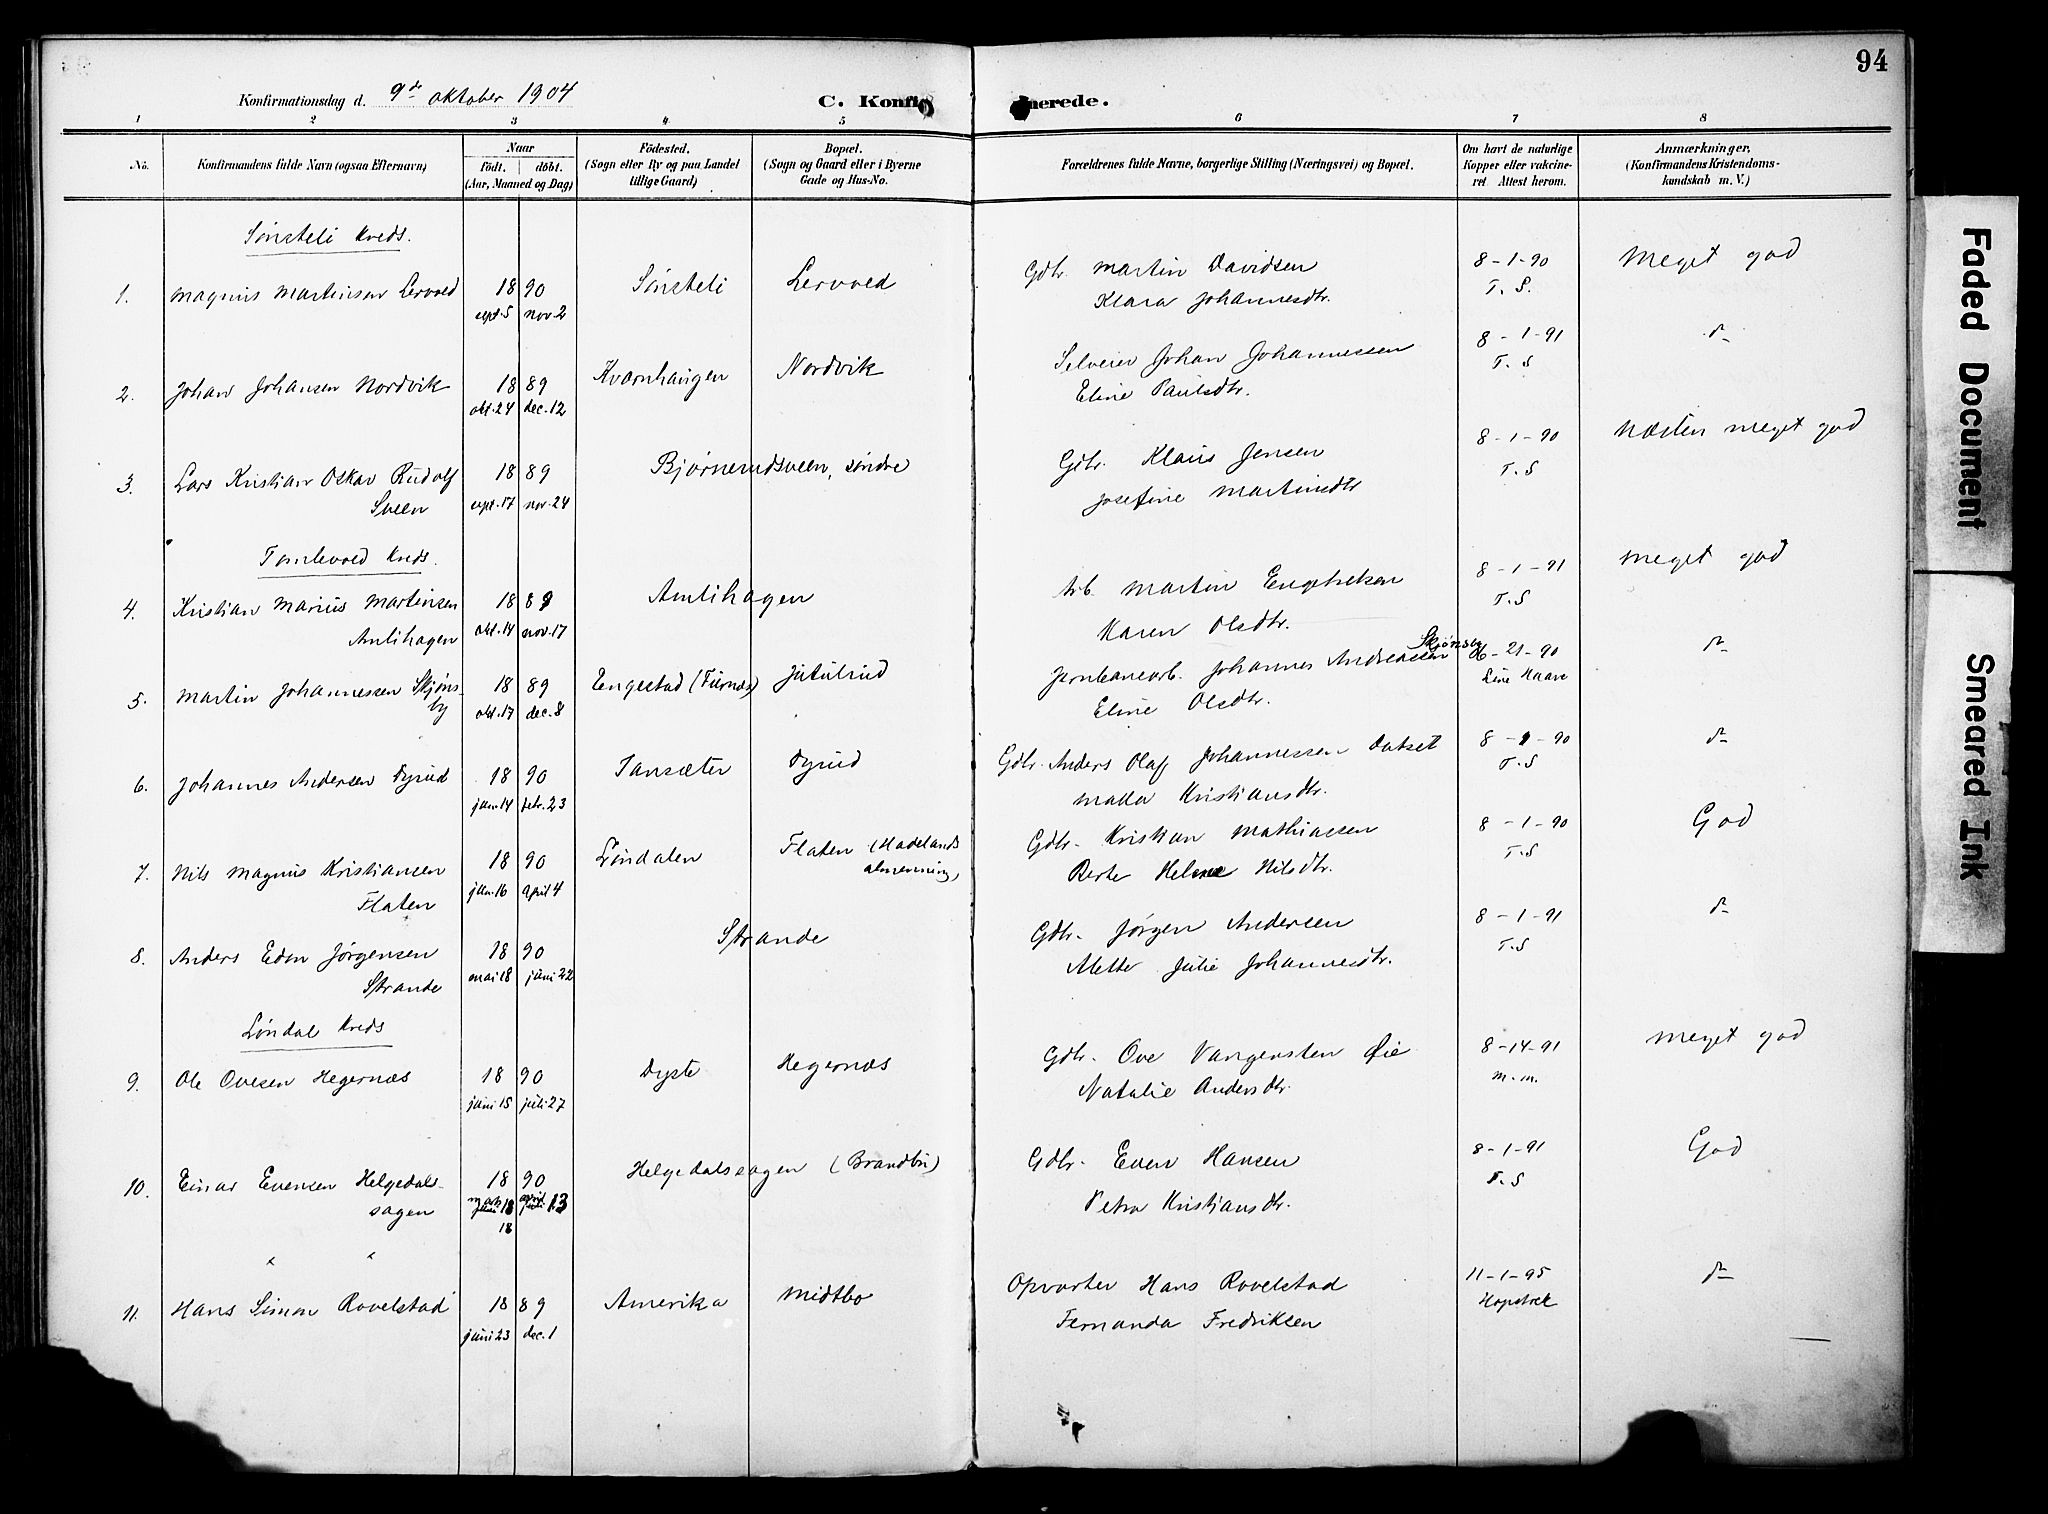 94
Konfirmationsdag d. 9de oktober 1904
C. Konfi merede.
1 2 3 4 5 6 7 8
No. Konfirmandens fulde Navn (ogsaa Efternavn) Naar födt. döbt. (Aar, Maaned og Dag) Födested. (Sogn eller By og paa Landet tillige Gaard) Bopæl. (Sogn og Gaard eller i Byerne Gade og Hus-No. Forældrenes fulde Navne, borgerlige Stilling (Næringsvei) og Bopæl. Om havt de naturlige Kopper eller vakcineret Attest herom. Anmærkninger. (Konfirmandens Kristendomskundskab m. V.)
Sønsteli Kreds.
1. Magnus Martinsen Lervold 18 90 Sønsteli Lervold Gdbr. Martin Davidsen 8-1-90 Meget god
sept. 5 nov. 2 Klara Johannesdtr. T. S.
2. Johan Johansen Nordvik 18 89 Kvarnhaugen Nordvik Selveier Johan Johannessen 8-1-91 do
okt. 24 dec. 12 Eline Paulsdtr. T. S
3. Lars Kristian Oskar Rudolf 18 89 Bjørnerudsveen, søndre Gdbr. Klaus Jensen 8-1-90 Næsten meget god
Sveen sept. 17 nov. 24 Josefine Martinsdtr T. S
Tomlevold Kreds.
4. Kristian Marius Martinsen 18 89 Amlihagen Arb. Martin Engebretsen 8-1-91 Meget god
Amlihagen okt. 14 nov. 17 Karen Olsdtr. T. S
5. Martin Johannessen Skjøns- 18 89 Engestad (Furnæs) Jutulrud Jernbanearb. Johannes Andreassen Skjønsby 6-21-90 do
by okt. 17 dec. 8 Eline Olsdtr. Line Haave
6. Johannes Andersen Dyrud 18 90 Tansæter Dyrud Gdbr. Anders Olaf Johannessen 8-1-90 do
jan. 14 febr. 23 Kristiansdtr. T. S
7. Nils Magnus Kristiansen 18 90 Løndalen Flaten (Hadelands Gdbr. Kristian Mathiassen 8-1-90 God
Flaten jan. 16 april 4 almenning) Berte Helene Nilsdtr. T. S
8. Anders Edon Jørgensen 18 90 Strande Gdbr. Jørgen Andersen 8-1-91 do
Strande mai 18 juni 22 Mette Julie Johannesdtr. T. S
Løndal Kreds
9. Ole Ovesen Hegernæs 18 90 Dyste Hegernæs Gdbr. Ove Vangensten Øie 8-14-91 Meget god
juni 15 juli 27 Natalie Andersdtr. M. M.
10. Einar Evensen Helgedals- 18 90 Helgedalssagen (Brandbu) Gdbr. Even Hansen 8-1-91 God
sagen 18 april 13 Petra Kristiansdtr. T. S
18
" "
11. Hans Simon Rovelstad 18 89 Amerika Midtbo Opvarter Hans Rovelstad 11-1-95 do
juni 23 dec. 1 Fernanda Fredriksen
Faded Document
Smeared Ink